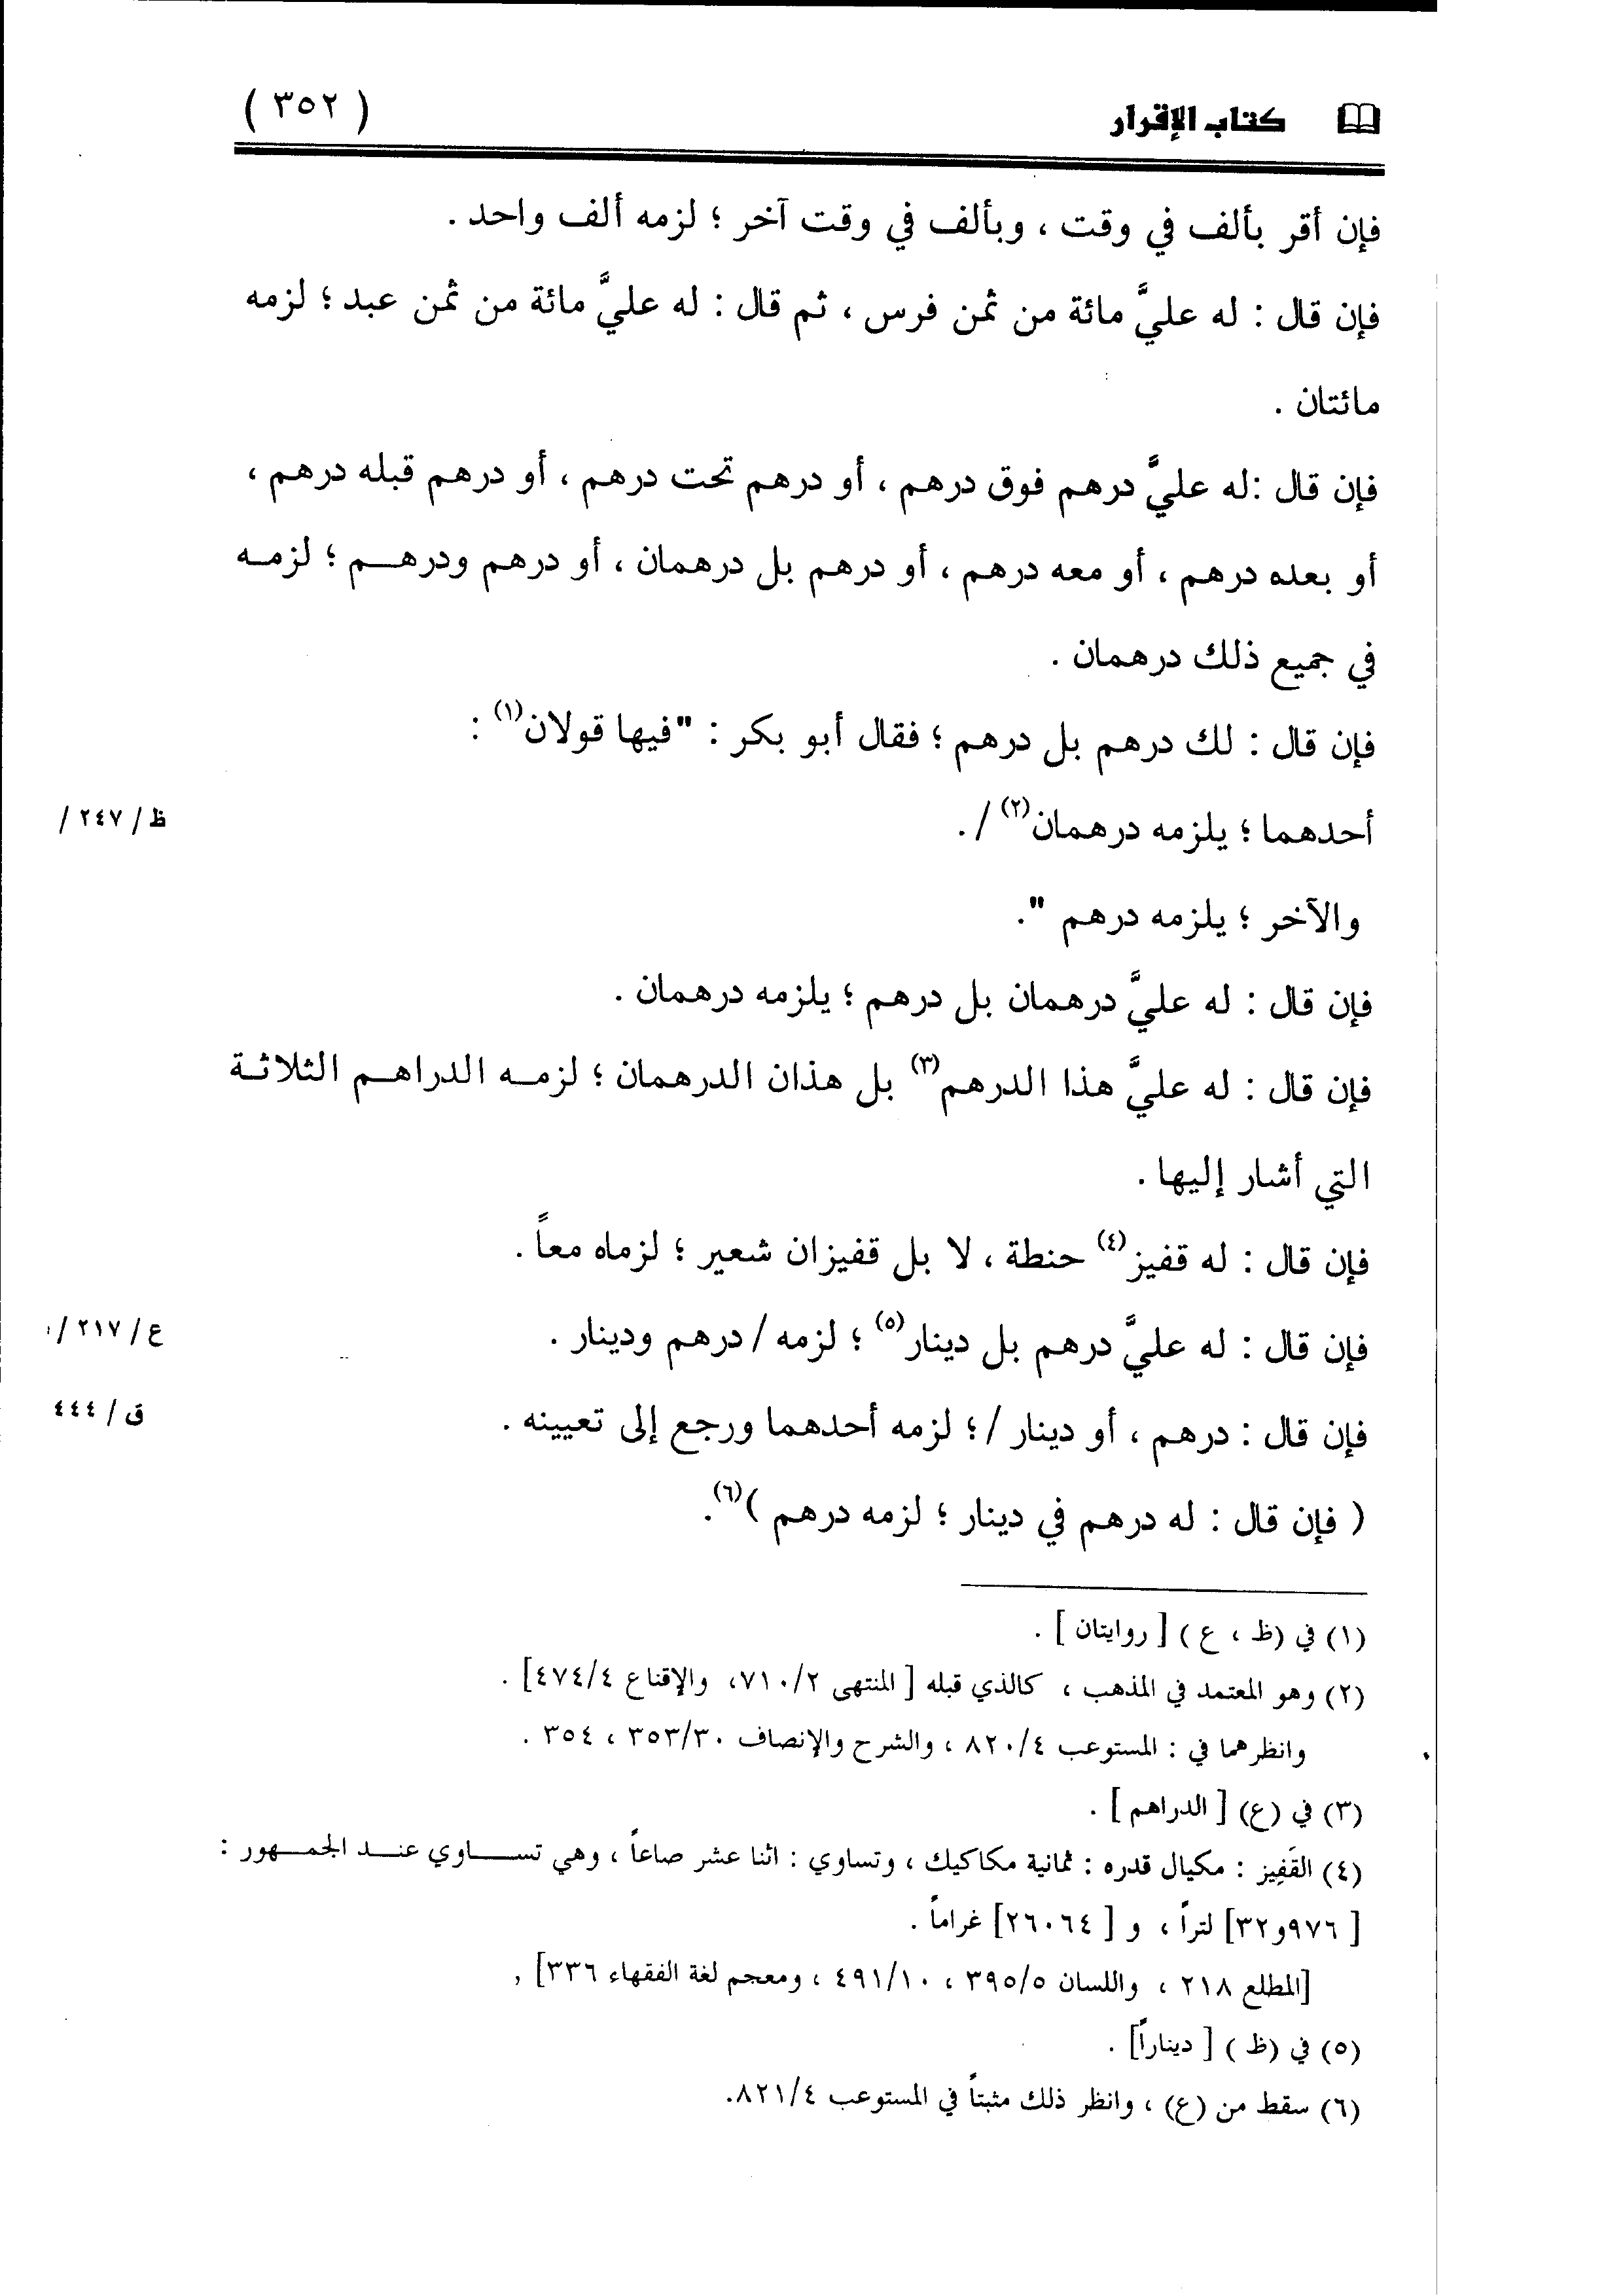 كتاب الإقرار
( ٣٥٢ )
فإن أقر بألف في وقت ، وبألف في وقت آخر ؛ لزمه ألف واحد .
فإن قال : له عليَّ مائة من ثمن فرس ، ثم قال : له عليَّ مائة من ثمن عبد ؛ لزمه
مائتان .
فإن قال :له عليَّ درهم فوق درهم ، أو درهم تحت درهم ، أو درهم قبله درهم ،
أو بعده درهم ، أو معه درهم ، أو درهم بل درهمان ، أو درهم ودرهــم ؛ لزمـه
في جميع ذلك درهمان .
فإن قال : لك درهم بل درهم ؛ فقال أبو بكر : "فيها قولان(١) :
أحدهما ؛ يلزمه درهمان(٢) / .
ظ / ٢٤٧ /
والآخر ؛ يلزمه درهم ".
فإن قال : له عليَّ درهمان بل درهم ؛ يلزمه درهمان .
فإن قال : له عليَّ هذا الدرهم(٣) بل هذان الدرهمان ؛ لزمـه الدراهـم الثلاثـة
التي أشار إليها .
فإن قال : له قفيز(٤) حنطة ، لا بل قفيزان شعير ؛ لزماه معاً .
فإن قال : له عليَّ درهم بل دينار(٥) ؛ لزمه / درهم ودينار .
ع / ٢١٧ /
فإن قال : درهم ، أو دينار / ؛ لزمه أحدهما ورجع إلى تعيينه .
ق / ٤٤٤
( فإن قال : له درهم في دينار ؛ لزمه درهم )(٦).
(١) في (ظ ، ع ) [ روايتان ] .
(٢) وهو المعتمد في المذهب ، كالذي قبله [ المنتهى ٧١٠/٢، والإقناع ٤٧٤/٤] .
وانظرهما في : المستوعب ٨٢٠/٤ ، والشرح والإنصاف ٣٥٣/٣٠ ، ٣٥٤ .
(٣) في (ع) [ الدراهم ] .
(٤) القَفِيز : مكيال قدره : ثمانية مكاكيك ، وتساوي : اثنا عشر صاعاً ، وهي تســـاوي عنــد الجمـــهور :
[ ٩٧٦و٣٢] لتراً ، و [ ٢٦٠٦٤] غراماً .
[المطلع ٢١٨ ، واللسان ٣٩٥/٥ ، ٤٩١/١٠ ، ومعجم لغة الفقهاء ٣٣٦] ,
(٥) في (ظ ) [ ديناراً] .
(٦) سقط من (ع) ، وانظر ذلك مثبتاً في المستوعب ٨٢١/٤.